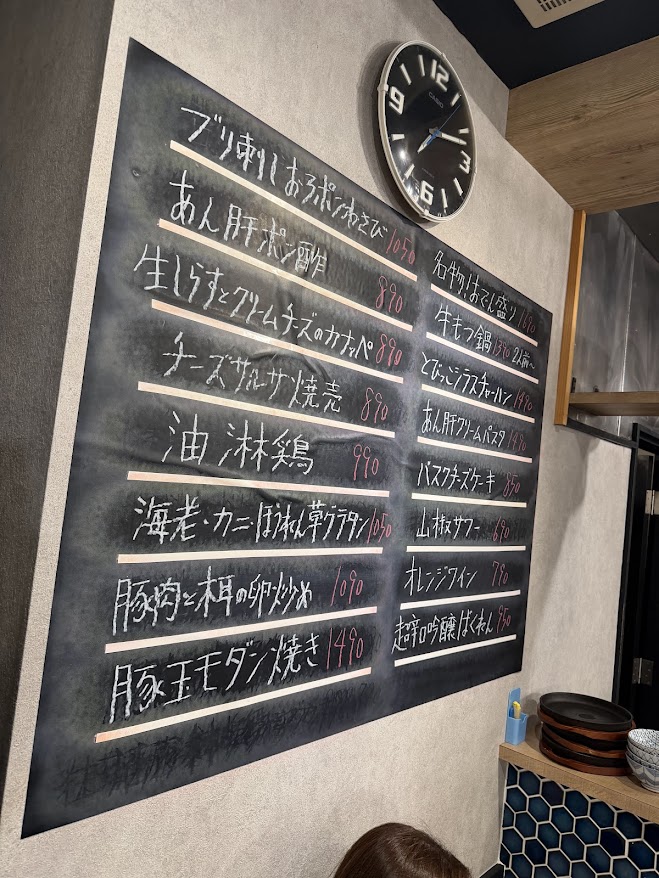 ブリ刺しおろポンわさび 1050
あん肝ポン酢 890
生しらすとクリームチーズのカナッペ 890
チーズサルサ焼売 890
油淋鶏 990
海老・カニ・ほうれん草グラタン 1050
豚肉と木耳の卵炒め 1090
豚玉モダン焼き 1490
名物!おでん盛り
牛もつ鍋 1390 2人前〜
とびっこシラスチャーハン 1490
あん肝クリームパスタ 1490
バスクチーズケーキ 850
山椒サワー 690
オレンジワイン 790
超辛口吟醸ばくれん 950
12
3
6
9
CASIO